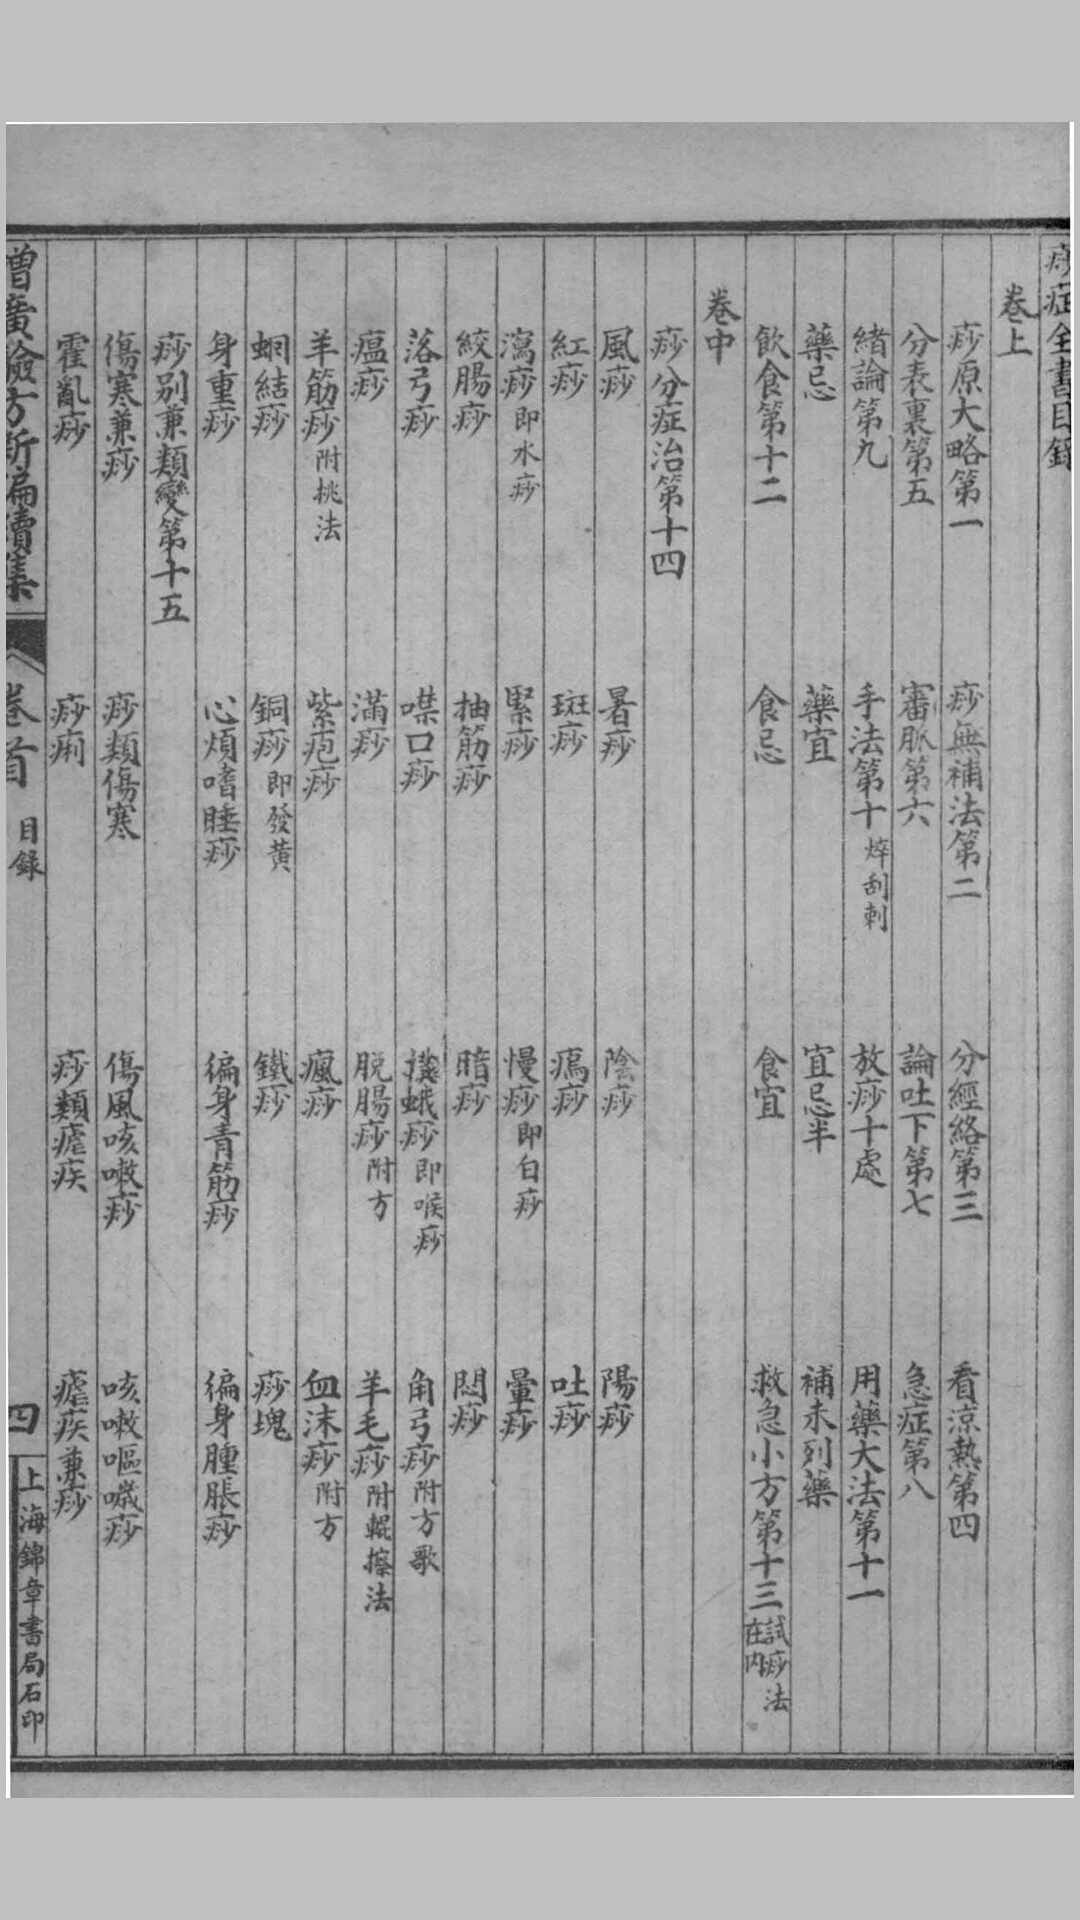 痧症全書目錄
卷上
痧原大略第一 痧無補法第二 分經絡第三 看涼熱第四
分表裏第五 審脈第六 論吐下第七 急症第八
緒論第九 手法第十 焠刮刺 放痧十處 用藥大法第十一
藥忌 藥宜 宜忌半 補未列藥
飲食第十二 食忌 食宜 救急小方第十三 試痧法在內
卷中
痧分症治第十四
風痧 暑痧 陰痧 陽痧
紅痧 斑痧 瘑痧 吐痧
瀉痧 即水痧 緊痧 慢痧 即白痧 暈痧
絞腸痧 抽筋痧 暗痧 悶痧
落弓痧 噤口痧 撲蛾痧 即喉痧 角弓痧 附方歌
瘟痧 滿痧 脫腸痧 附方 羊毛痧 附輥擦法
羊筋痧 附挑法 紫疱痧 瘋痧 血沫痧 附方
蚘結痧 銅痧 即發黃 鐵痧 痧塊
身重痧 心煩嗜睡痧 徧身青筋痧 徧身腫脹痧
痧別兼類變第十五
傷寒兼痧 痧類傷寒 傷風咳嗽痧 咳嗽嘔噦痧
霍亂痧 痧痢 痧類瘧疾 瘧疾兼痧
增廣驗方新編續集 卷首 目錄 四 上海錦章書局石印